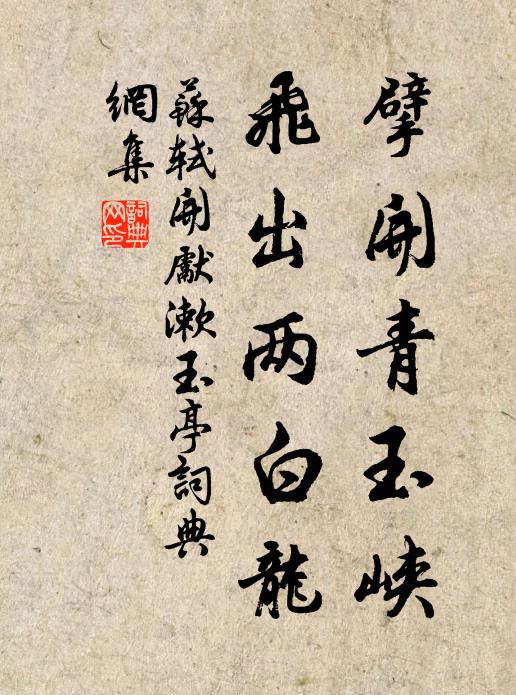 擘開青玉峡
飛出两白龍
蘇軾開獻漱玉亭詞典
網集
詞典
网印